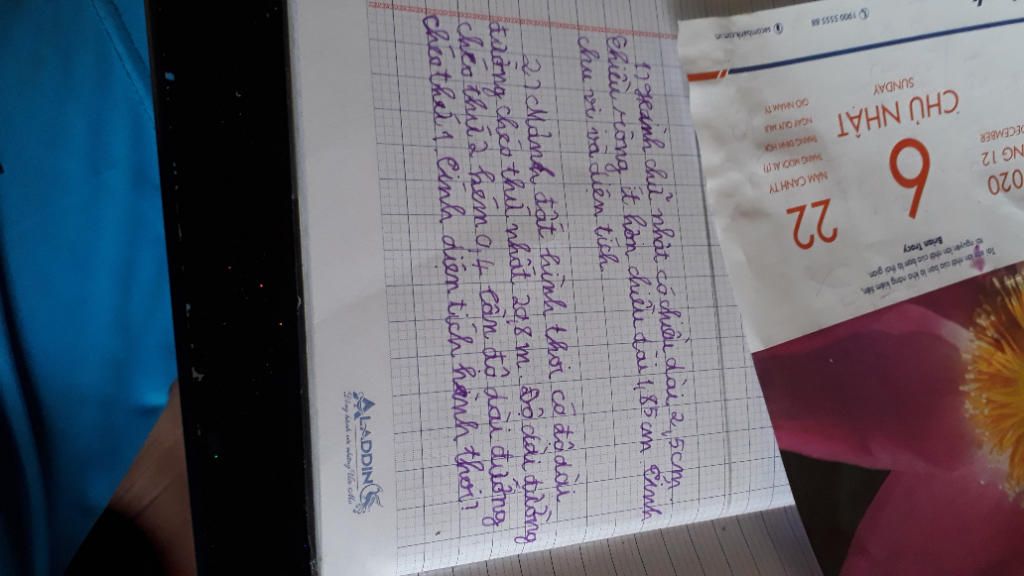 1) Hình chữ nhật có chiều dài 2,5cm
Chiều rộng ít hơn chiều dài 1,85cm Tính
chu vi và diện tích.
2) Mảnh đất hình thoi có độ dài
đường chéo thứ nhất 20,8m Độ dài đường
chéo thứ 2 kém 0,4 lần độ dài đường
chéo thứ 1. Tính diện tích hình thoi?
ALADDIN
1900 5555 88
sacombank.com.vn
CHỦ NHẬT
SUNDAY
6
22
DECEMBER
NG 12
2020
NĂM CANH TÝ
THÁNG MƯỜI
THÁNG ĐINH HỢI
NGÀY QUÝ MÙI
GIỜ NHÂM TÝ
Brian Tracy